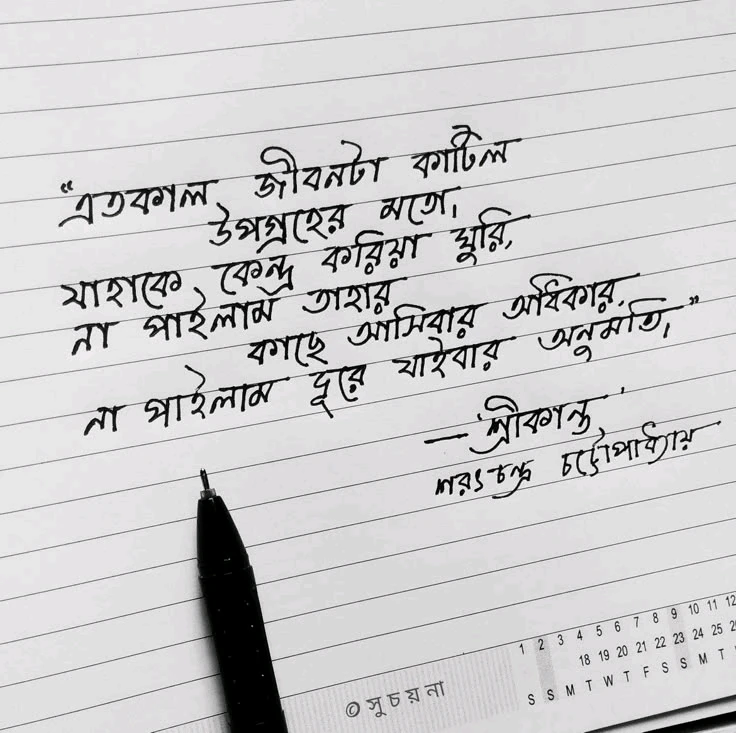 “এতকাল জীবনটা কাটিল
উপগ্রহের মতো,
যাহাকে কেন্দ্র করিয়া ঘুরি,
না পাইলাম তাহার
কাছে আসিবার অধিকার,
না পাইলাম দূরে যাইবার অনুমতি,”
— 'শ্রীকান্ত'
শরৎচন্দ্র চট্টোপাধ্যায়
1 2 3 4 5 6 7 8 9 10 11 12
18 19 20 21 22 23 24 25
S S M T W T F S S M T
© সুচয়না